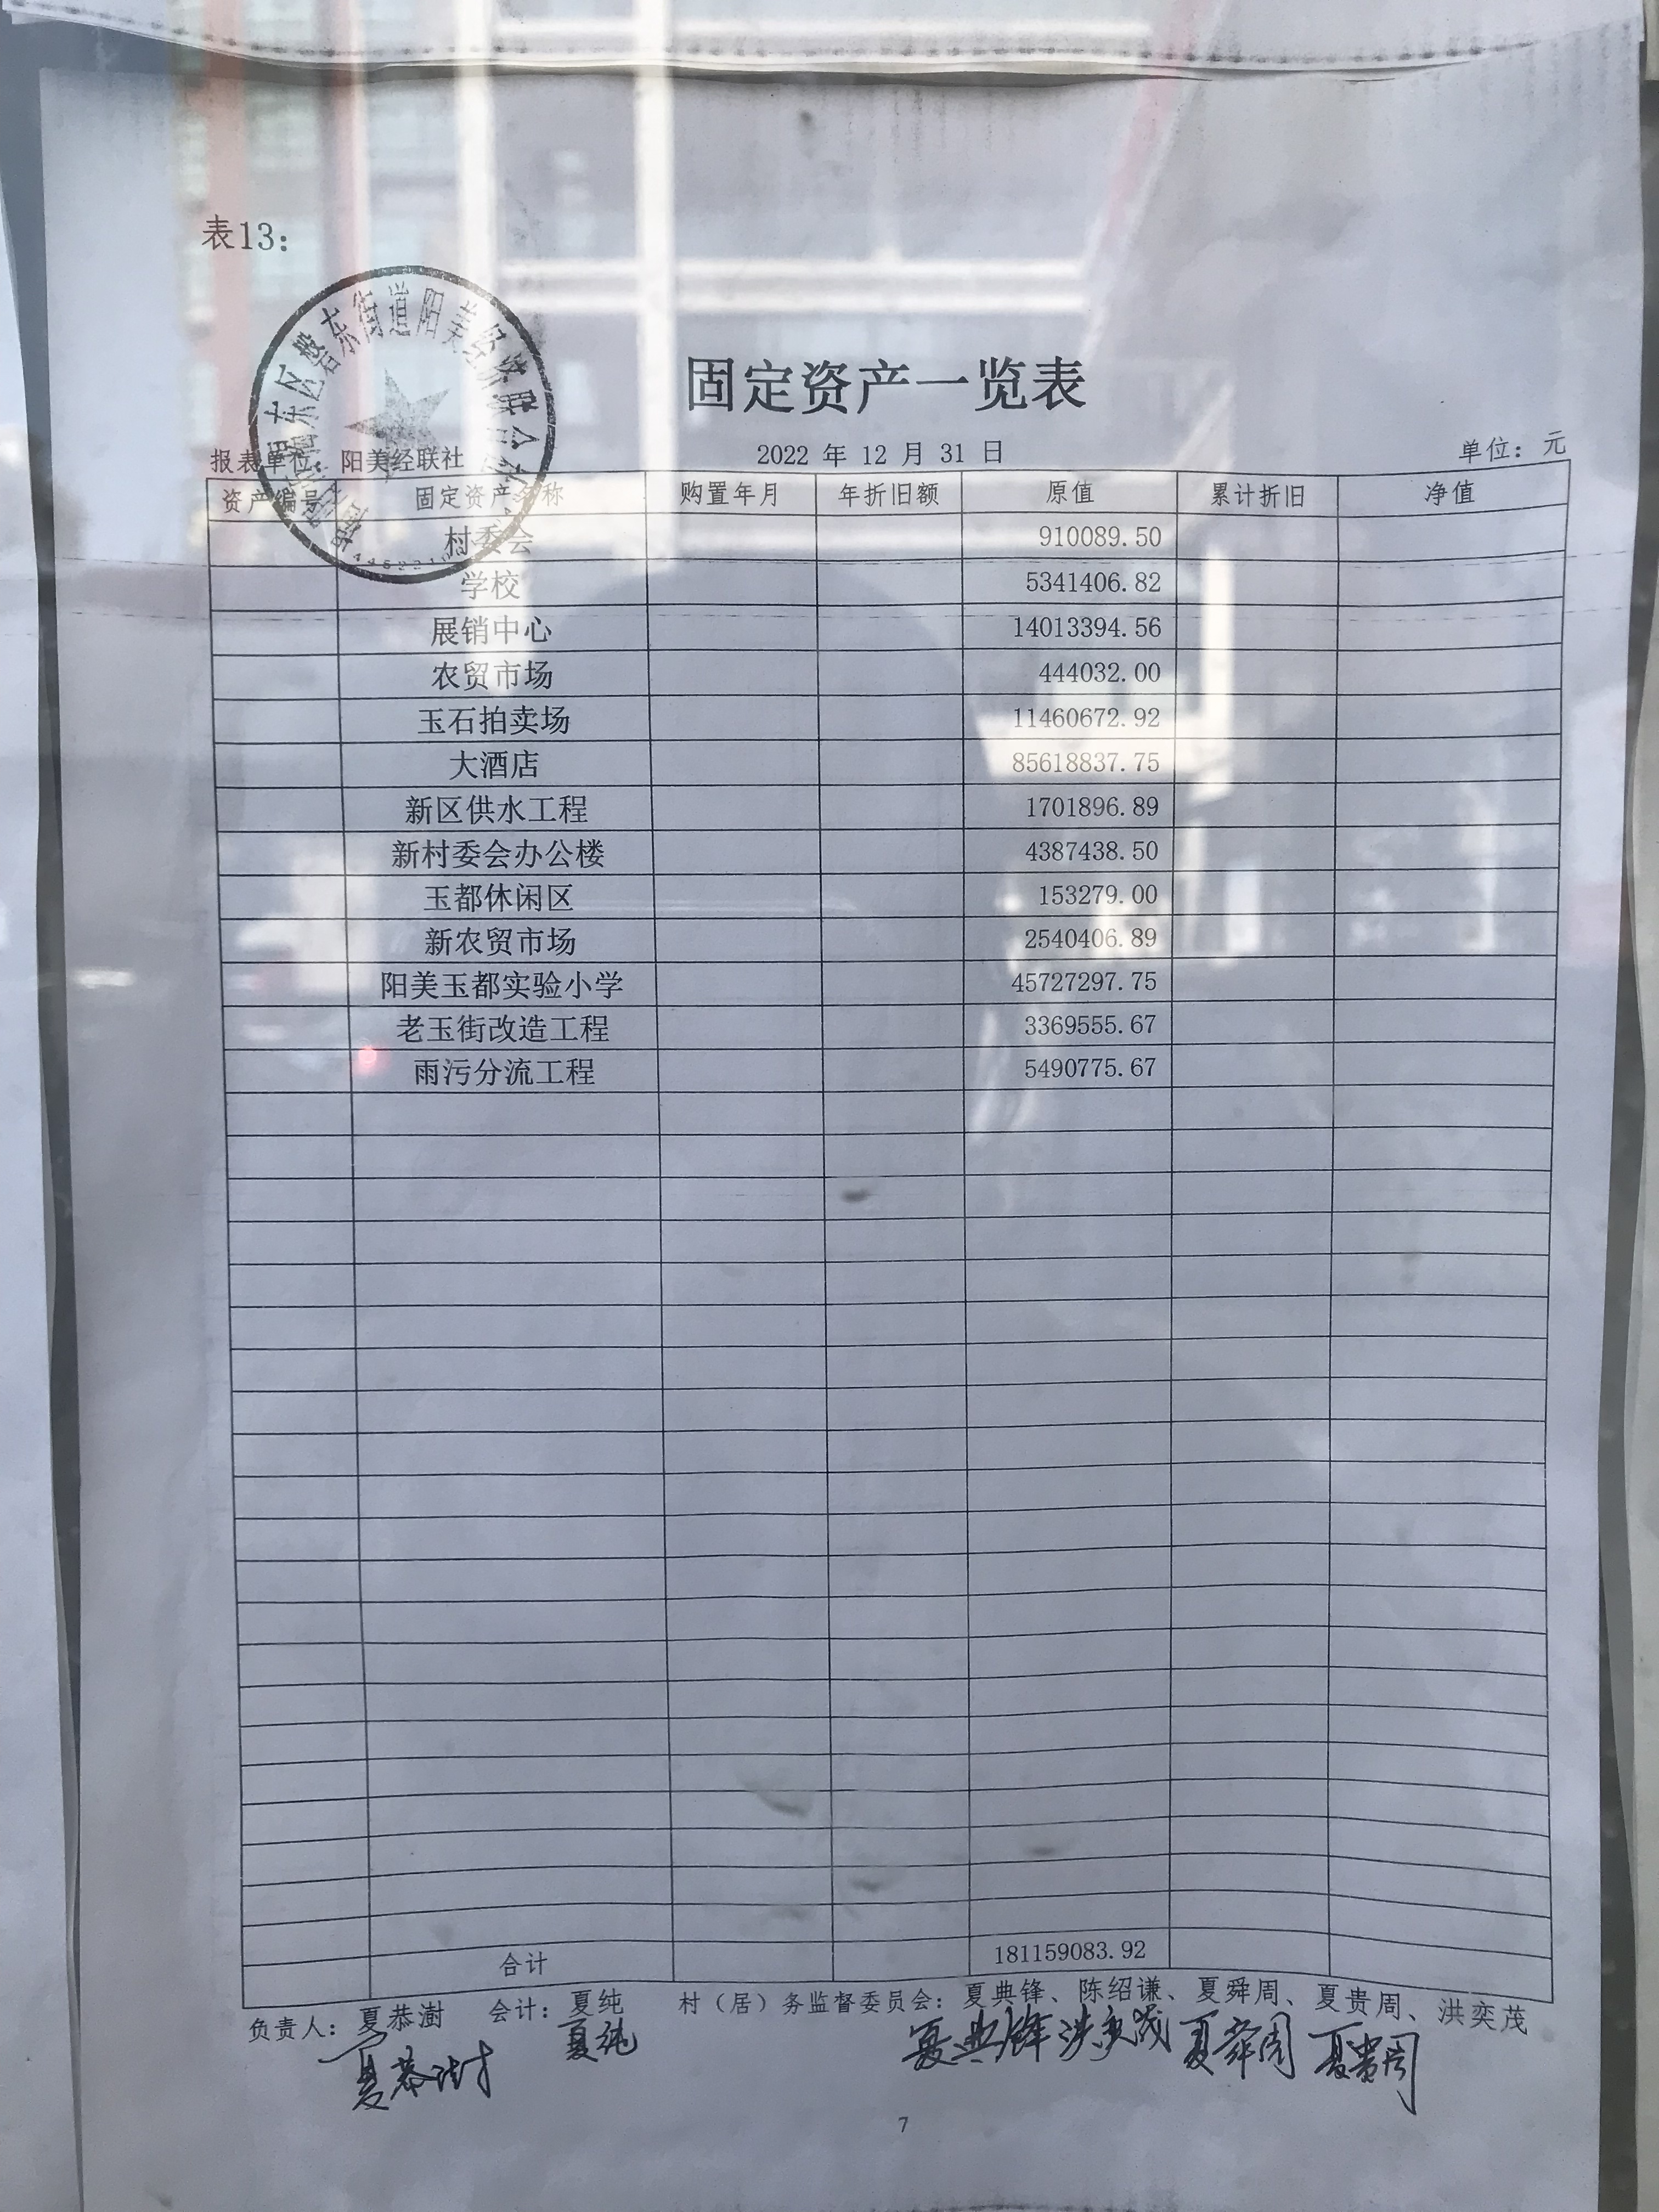 表13：
磐东街道阳美经济联合
固定资产一览表
报表单位：阳美经联社 2022 年 12 月 31 日 单位：元
资产编号 固定资产名称 购置年月 年折旧额 原值 累计折旧 净值
村委会 910089.50
学校 5341406.82
展销中心 14013394.56
农贸市场 444032.00
玉石拍卖场 11460672.92
大酒店 85618837.75
新区供水工程 1701896.89
新村委会办公楼 4387438.50
玉都休闲区 153279.00
新农贸市场 2540406.89
阳美玉都实验小学 45727297.75
老玉街改造工程 3369555.67
雨污分流工程 5490775.67
合计 181159083.92
负责人：夏恭澍 会计：夏纯 村（居）务监督委员会：夏典锋、陈绍谦、夏舜周、夏贵周、洪奕茂
夏恭澍 夏纯 夏典锋 洪奕茂 夏舜周 夏贵周
7